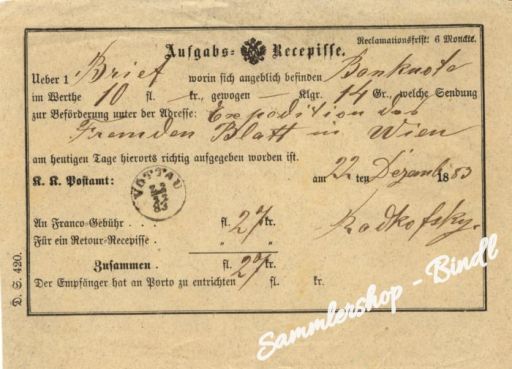 Reclamationsfrist: 6 Monate.
Aufgabs- Recepisse.
Ueber 1 Brief worin sich angeblich befinden Banknote
im Werthe 10 fl. — kr., gewogen — Klgr. 14 Gr., welche Sendung
zur Beförderung unter der Adresse: Expedition des
Fremden Blatt in Wien
am heutigen Tage hierorts richtig aufgegeben worden ist.
K. K. Postamt: am 22 ten Dezemb 1883
VÖTTAU
An Franco-Gebühr . . . fl. 27 kr. Radkofsky.
Für ein Retour-Recepisse . " "
Zusammen . fl. 27 kr.
Der Empfänger hat an Porto zu entrichten fl. kr.
D. S. 420.
Sammlershop - Bindl